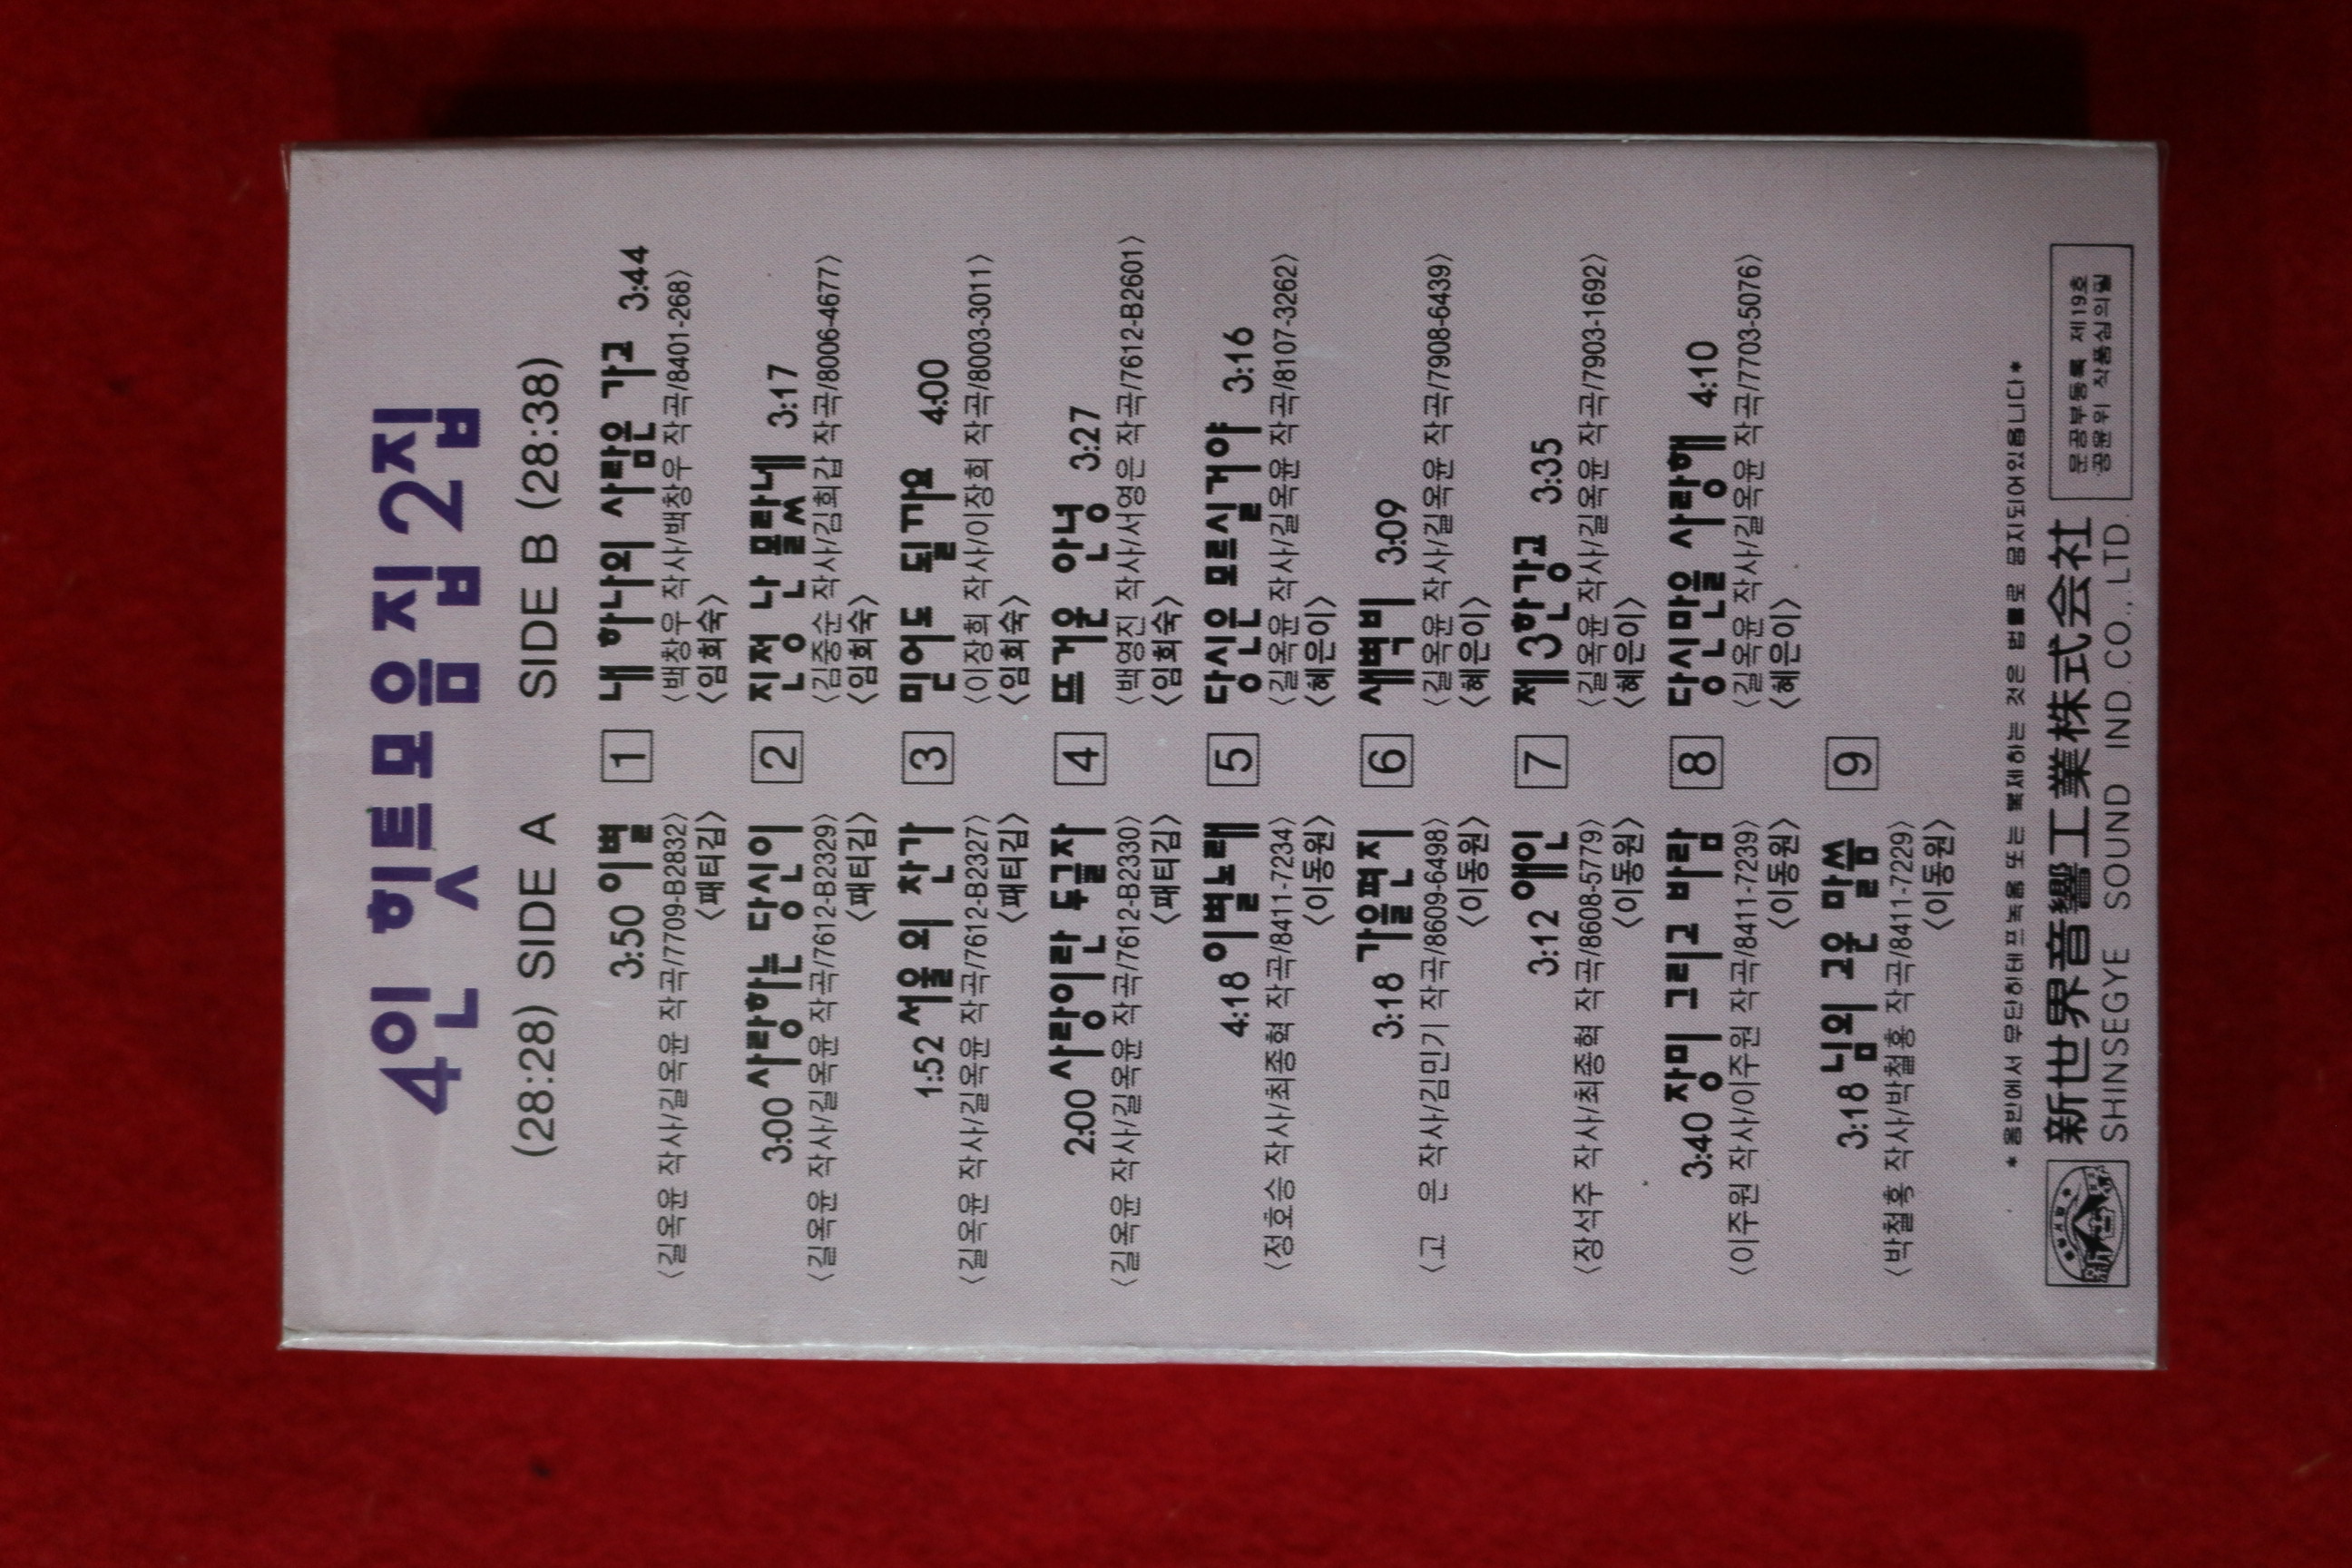 4인 힛트모음집 2집
(28:28) SIDE A
3:50 이별
〈길옥윤 작사/길옥윤 작곡/7709-B2832〉
〈패티김〉
3:00 사랑하는 당신이
〈길옥윤 작사/길옥윤 작곡/7612-B2329〉
〈패티김〉
1:52 서울의 찬가
〈길옥윤 작사/길옥윤 작곡/7612-B2327〉
〈패티김〉
2:00 사랑이란 두글자
〈길옥윤 작사/길옥윤 작곡/7612-B2330〉
〈패티김〉
4:18 이별노래
〈정호승 작사/최종혁 작곡/8411-7234〉
〈이동원〉
3:18 가을편지
〈고 은 작사/김민기 작곡/8609-6498〉
〈이동원〉
3:12 애인
〈장석주 작사/최종혁 작곡/8608-5779〉
〈이동원〉
3:40 장미 그리고 바람
〈이주원 작사/이주원 작곡/8411-7239〉
〈이동원〉
3:18 님의 고운 말씀
〈박철홍 작사/박철홍 작곡/8411-7229〉
〈이동원〉
1
2
3
4
5
6
7
8
9
SIDE B (28:38)
내 하나의 사람은 가고 3:44
〈백창우 작사/백창우 작곡/8401-268〉
〈임희숙〉
진정 난 몰랐네 3:17
〈김중순 작사/김희갑 작곡/8006-4677〉
〈임희숙〉
믿어도 될까요 4:00
〈이장희 작사/이장희 작곡/8003-3011〉
〈임희숙〉
뜨거운 안녕 3:27
〈백영진 작사/서영은 작곡/7612-B2601〉
〈임희숙〉
당신은 모르실거야 3:16
〈길옥윤 작사/길옥윤 작곡/8107-3262〉
〈혜은이〉
새벽비 3:09
〈길옥윤 작사/길옥윤 작곡/7908-6439〉
〈혜은이〉
제3한강교 3:35
〈길옥윤 작사/길옥윤 작곡/7903-1692〉
〈혜은이〉
당신만을 사랑해 4:10
〈길옥윤 작사/길옥윤 작곡/7703-5076〉
〈혜은이〉
*음반에서 무단히테프녹음 또는 복제하는 것은 법률로 금지되어있읍니다*
新世界音響工業株式会社
SHINSEGYE SOUND IND.CO.,LTD.
문공부등록 제19호
공윤위 작품심의필